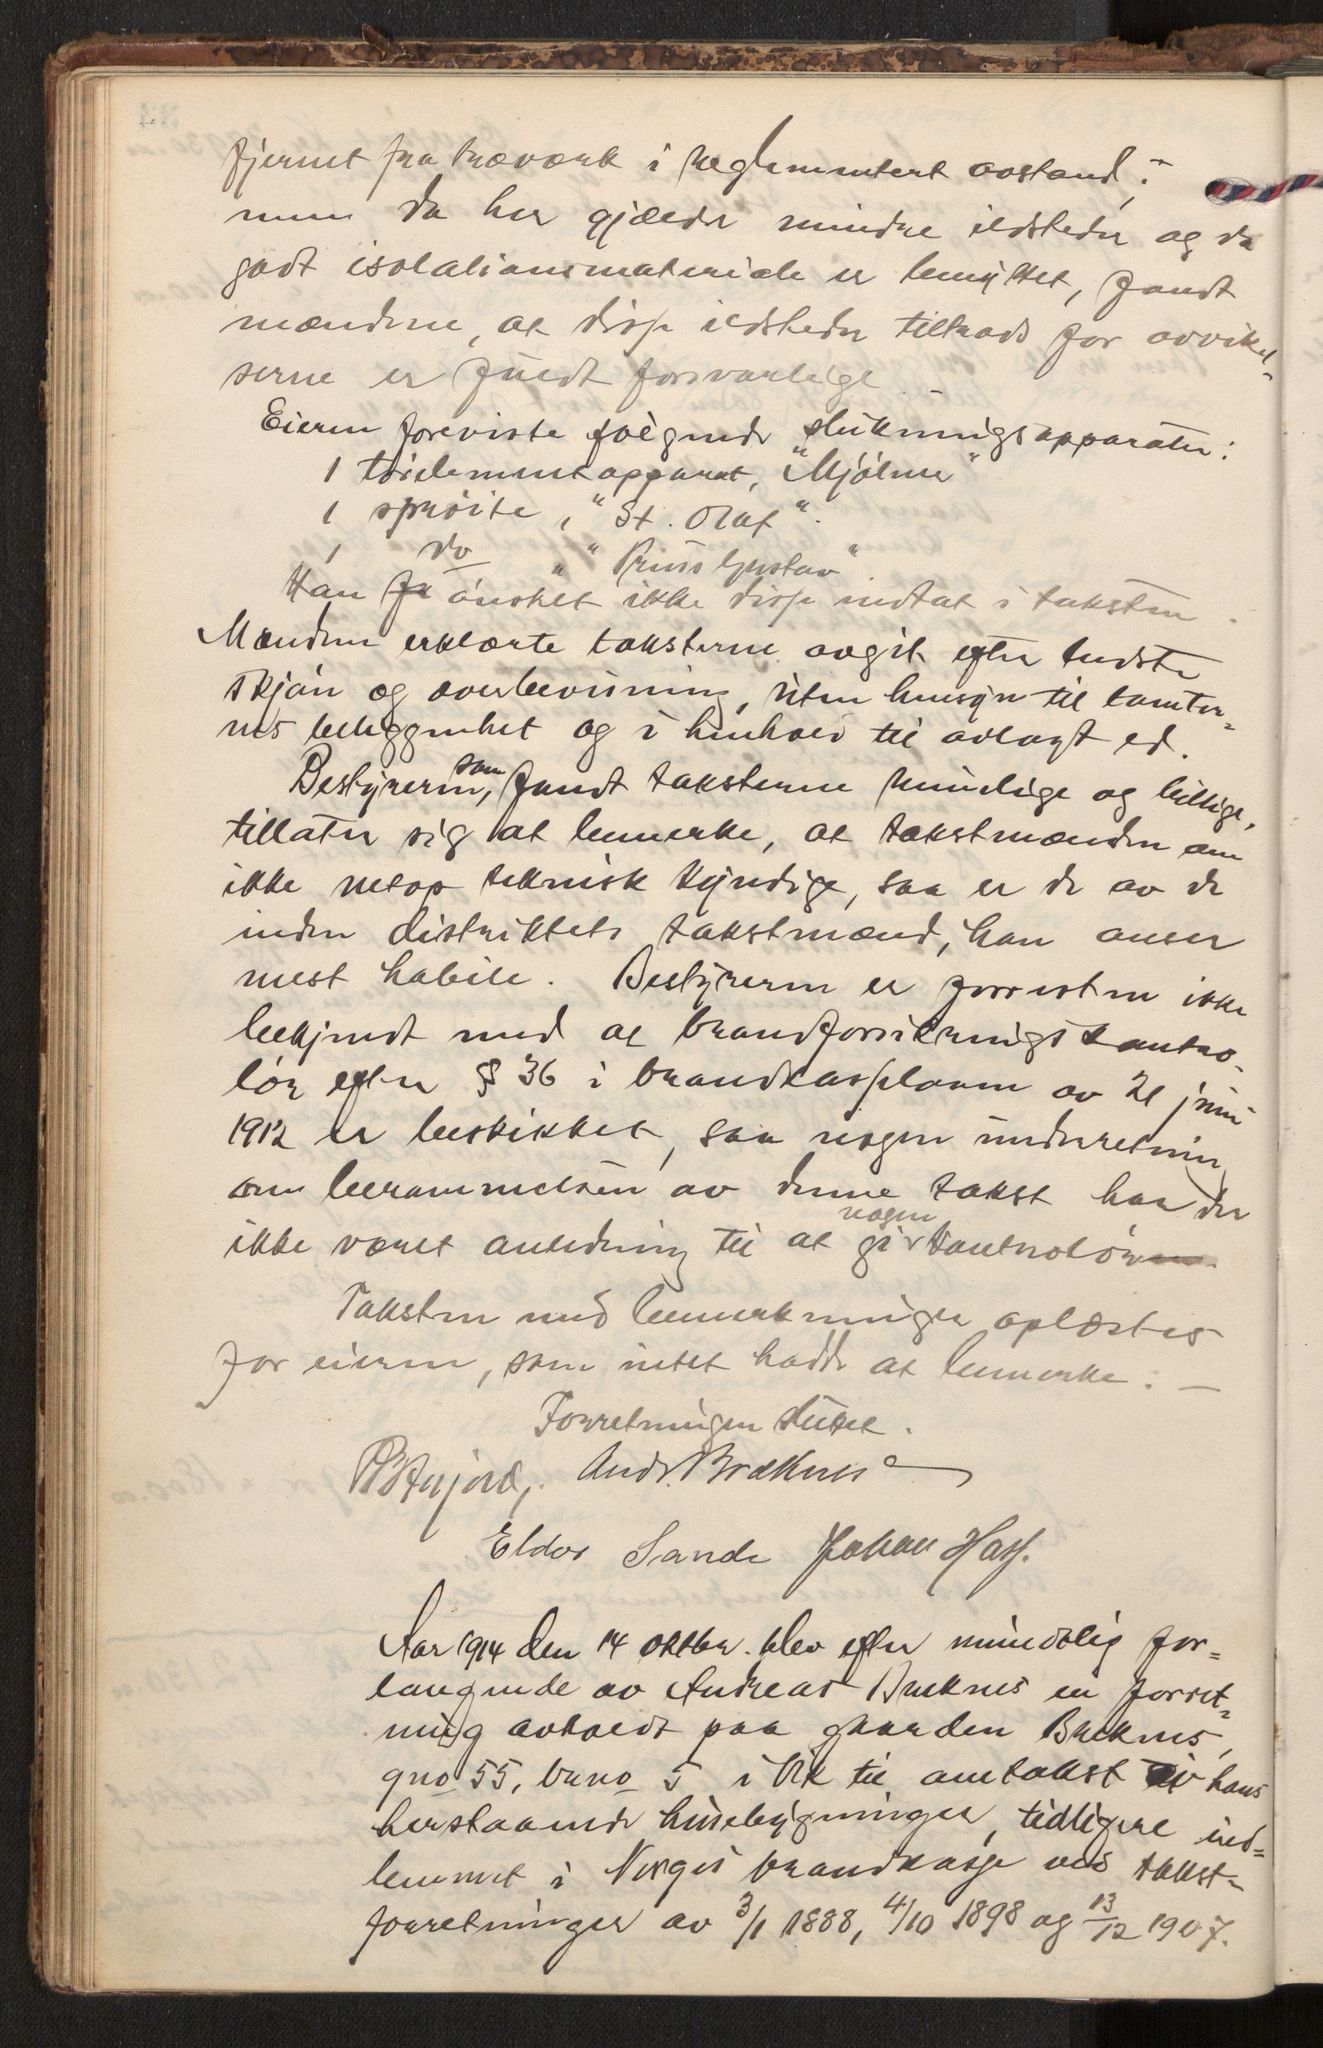 fjernet fra træværk i reglementert avstand;
men da her gjælder mindre ildsteder og da
godt isolationsmateriale er benyttet, fandt
mændene, at disse ildsteder tiltrods for avvikel-
serne er fuldt forsvarlige.
Eieren foreviste følgende slukningsapparater:
1 tøidemmetapparat, "Mjølner"
1 sprøite, "St. Olaf".
1 do " "Prins Gustav".
Han ønsket ikke disse indtat i taksten.
Mændene erklærte taksterne avgit efter bedste
skjøn og overbevisning, uten hensyn til tomter-
nes beliggenhet og i henhold til avlagt ed.
Bestyreren, som fandt taksterne rimelige og billige,
tillater sig at bemerke, at takstmændene om
ikke netop teknisk kyndige, saa er de av de
inden distriktets takstmænd, han anser
mest habile. Bestyreren er forresten ikke
bekjendt med at brandforsikringskontro-
lør efter § 36 i brandkasseloven av 21 juni
1912 er beskikket, saa nogen underretning
om berammelsen av denne takst har der
ikke været anledning til at gi nogen kontrolør.
Taksten med bemerkninger oplæstes
for eieren, som intet hadde at bemerke. —
Forretningen sluttet.
And. Bræknes
Eldor Sande Johan Hass.
Aar 1914 den 14 oktbr. blev efter mundtlig for-
langende av Andreas Breknes en forret-
ning avholdt paa gaarden Breknes,
gno 55, bruno 5 i Vik til omtakst av hans
herstaaende husebygninger, tidligere ind-
lemmet i Norges brandkasse ved takst-
forretninger av 3/1 1888, 4/10 1898 og 13/12 1907.